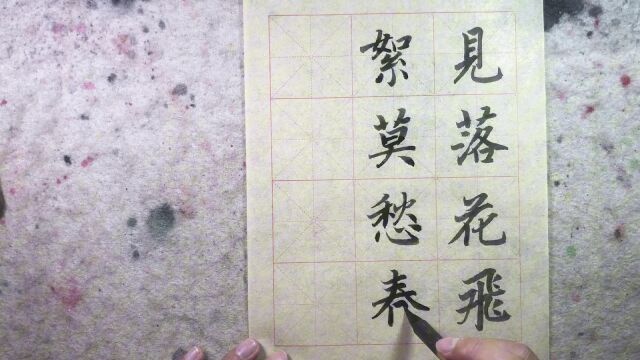 見落花飛
絮莫愁春